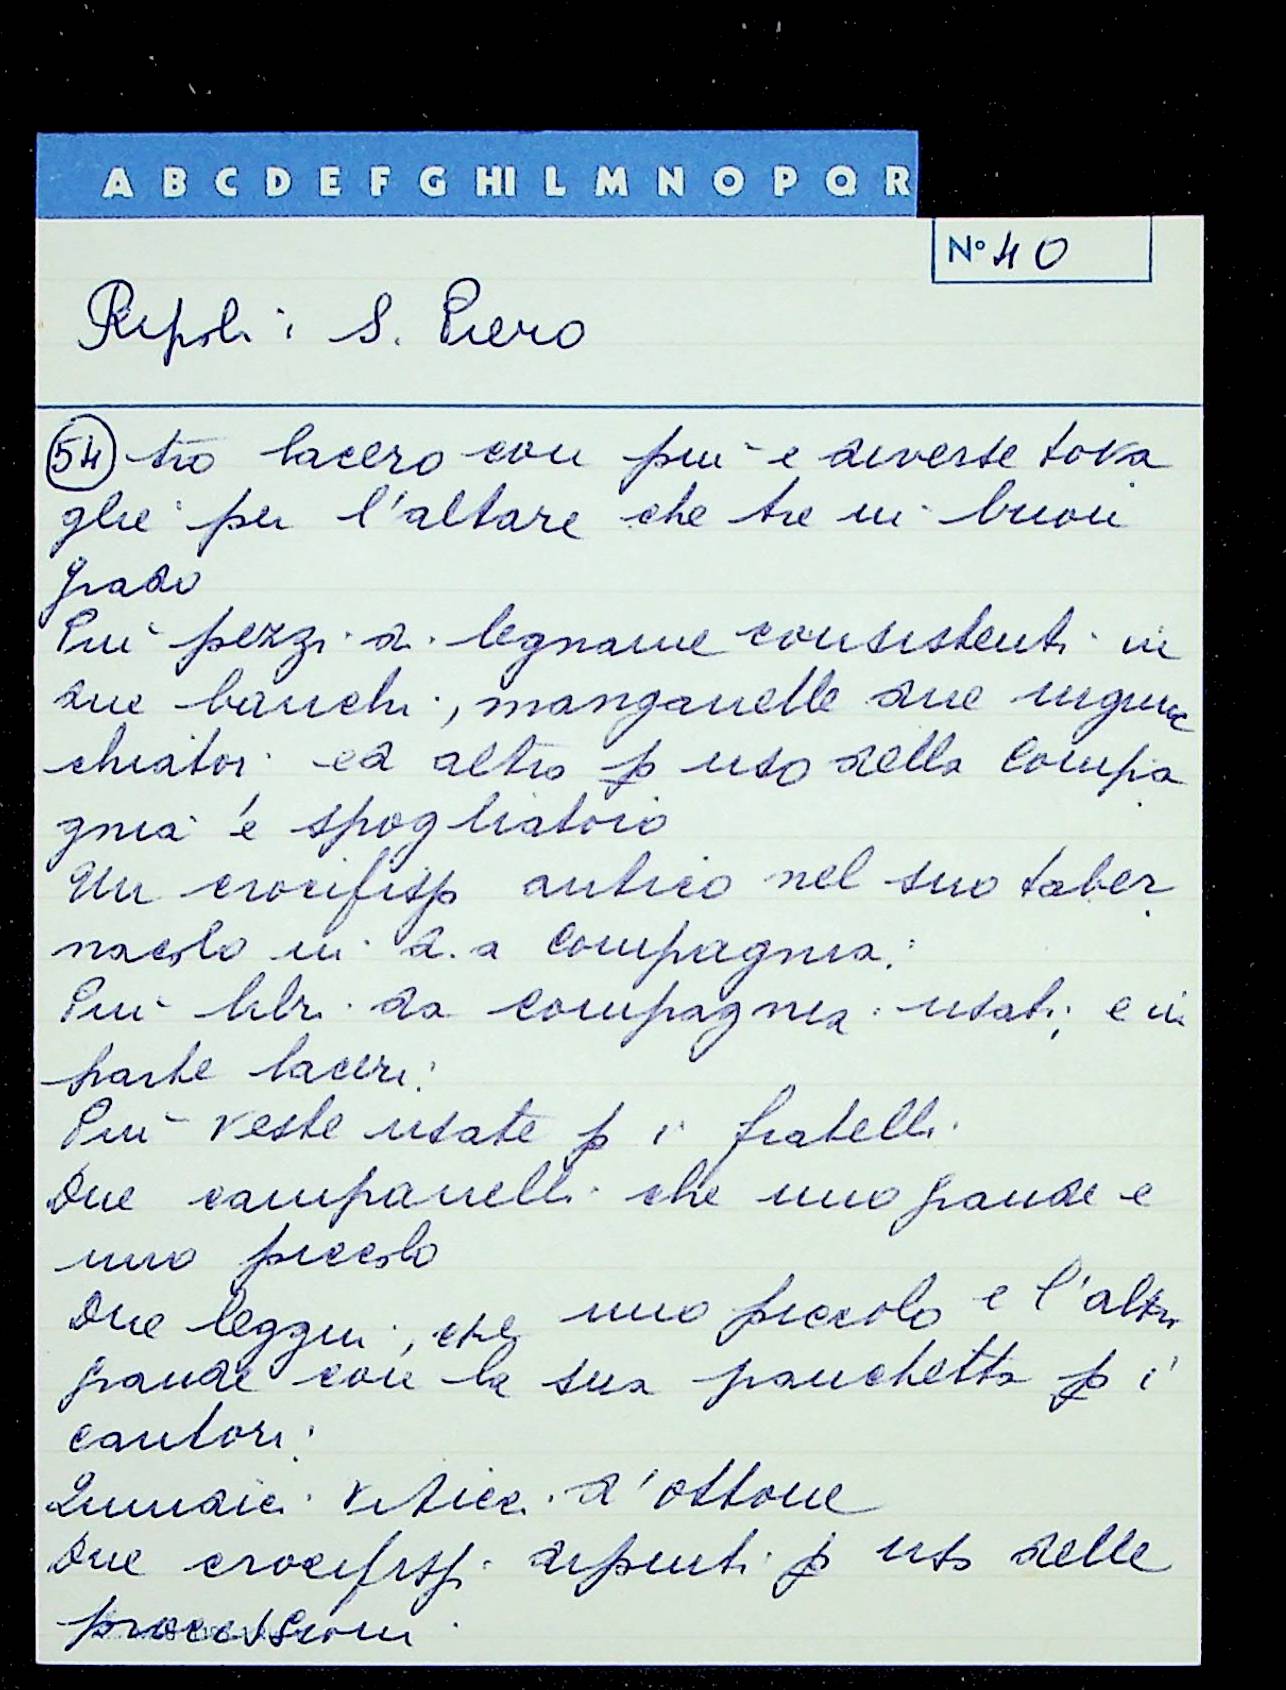 A B C D E F G HI L M N O P Q R
N° 40
Ripoli: S. Piero
54 tro lacero con più e diverse tova
glie per l'altare che tre in buon
grado
Più pezzi di legname consistenti in
due banchi, manganelle due inginoc
chiatori ed altro p uso della Compa
gnia e spogliatoio
Un crocifisso antico nel suo taber
nacolo in d.a Compagnia:
Più libri da compagnia usati; e in
parte laceri:
Più veste usate p i fratelli.
Due campanelli che uno grande e
uno piccolo
Due leggii, che uno piccolo e l'altro
grande con la sua panchetta p i
cantori:
Quindici viticci d'ottone
Due crocifissi dipinti p uso delle
processioni